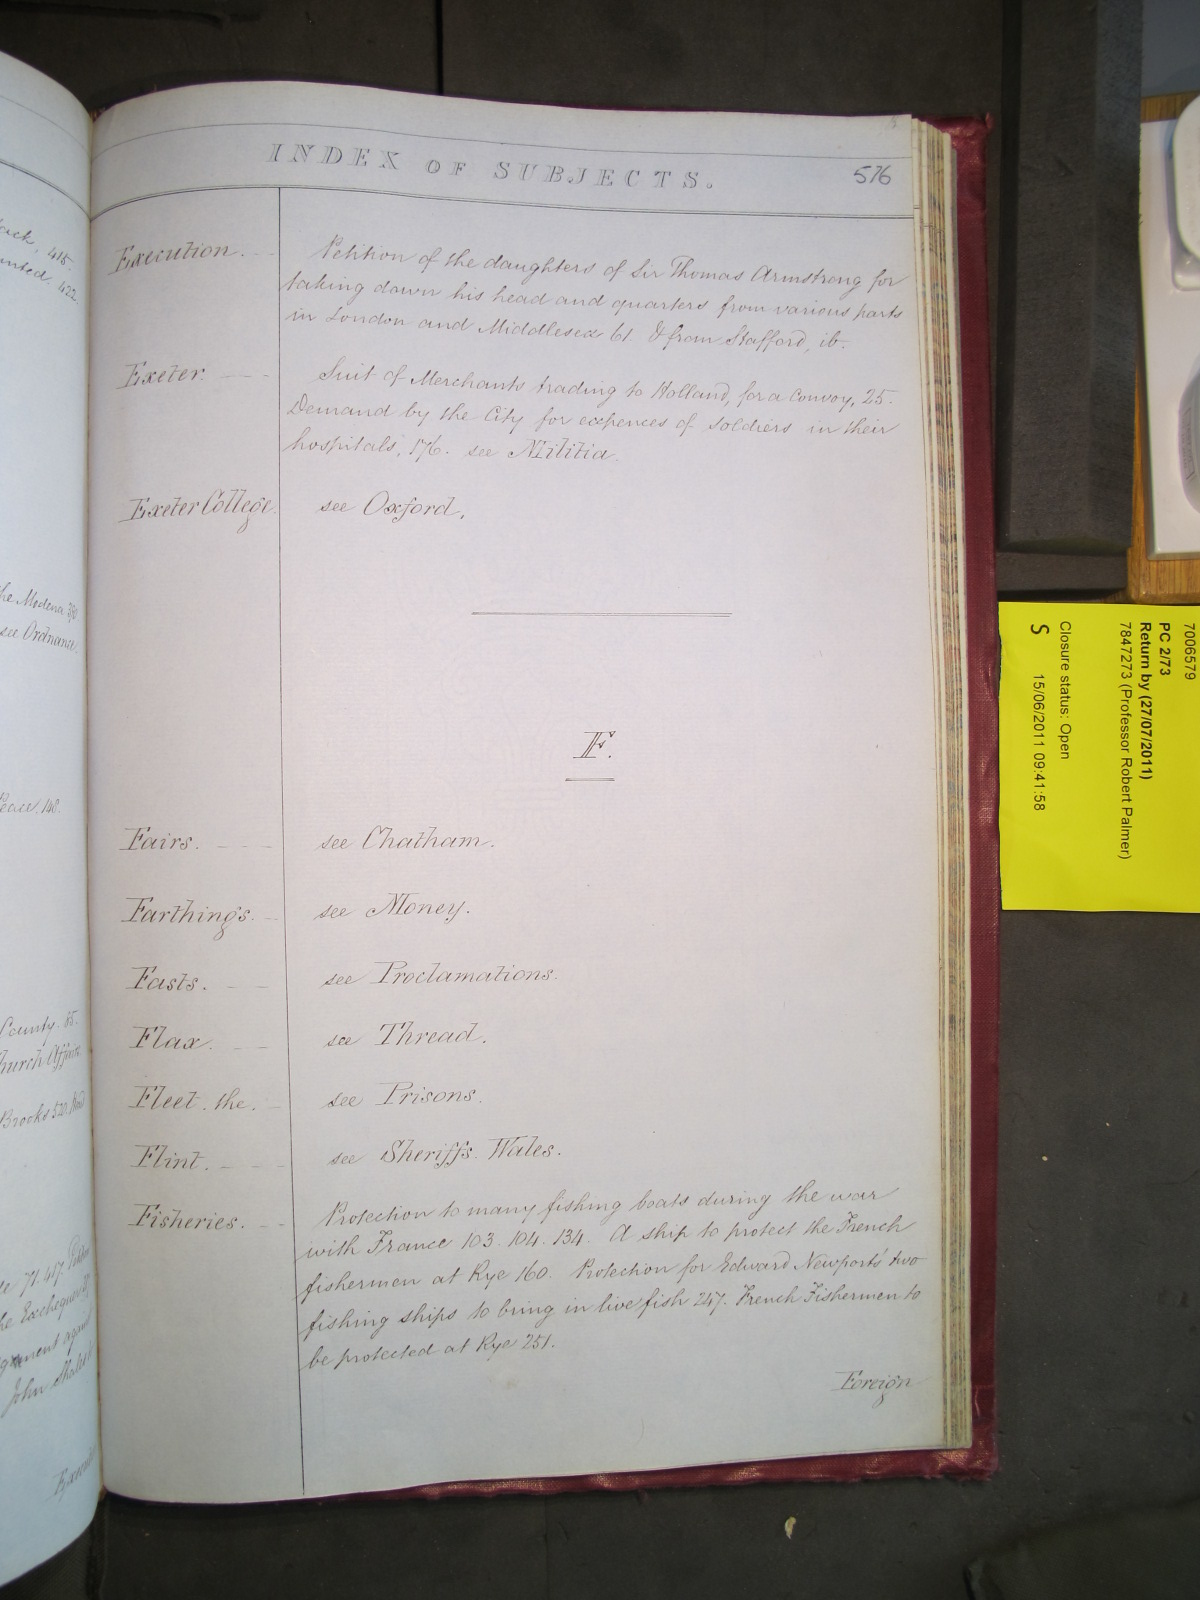 ack, 415.
anted. 422
he Modena 380
see Ordnance.
Peace. 148.
County. 65.
hurch Affairs.
Brooks 520.
71. 457.
he Exchequer
John Shales
INDEX OF SUBJECTS.
576
Execution. Petition of the daughters of Sir Thomas Armstrong for
taking down his head and quarters from various parts
in London and Middlesex 61. & from Stafford, ib.
Exeter. Suit of Merchants trading to Holland, for a Convoy, 25.
Demand by the City for expences of soldiers in their
hospitals, 176. see Militia.
Exeter College. see Oxford.
F.
Fairs. see Chatham.
Farthings. see Money.
Fasts. see Proclamations.
Flax. see Thread.
Fleet. the. see Prisons.
Flint. see Sheriffs. Wales.
Fisheries. Protection to many fishing boats during the war
with France 103. 104. 134. A ship to protect the French
fishermen at Rye 160. Protection for Edward Newport's two
fishing ships to bring in live fish 247. French Fishermen to
be protected at Rye 251.
Foreign
7006579
PC 2/73
Return by (27/07/2011)
7847273 (Professor Robert Palmer)
Closure status: Open
S 15/06/2011 09:41:58